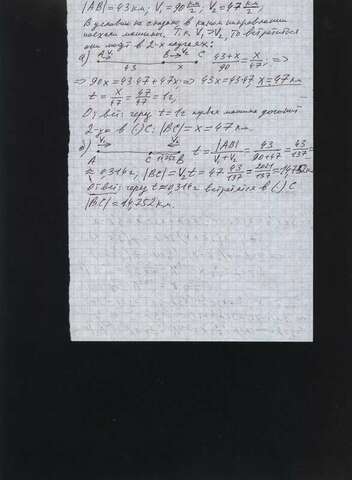 |AB| = 43 км; V₁ = 90 км/г, V₂ = 47 км/г,
В условии не сказано, в каком направлении
поехали машины. Т.к V₁ > V₂, то встретиться
они могут в 2-х случаях:
а) A V₁ B V₂ C
43 x
(43+x)/90 = x/47; =>
=> 90x = 43·47 + 47x; => 43x = 43·47, x = 47 км
t = x/47 = 47/47 = 1г,
Ответ: через t = 1г первая машина догонит
2-ую в (·) C: |BC| = x = 47 км.
б) V₁ V₂
A C B
t = |AB|/(V₁+V₂) = 43/(90+47) = 43/137 =
≈ 0,314г, |BC| = V₂t = 47 · 43/137 = 2021/137 = 14,752 км
Ответ: через t ≈ 0,314г встретятся в (·) C
|BC| = 14,752 км.